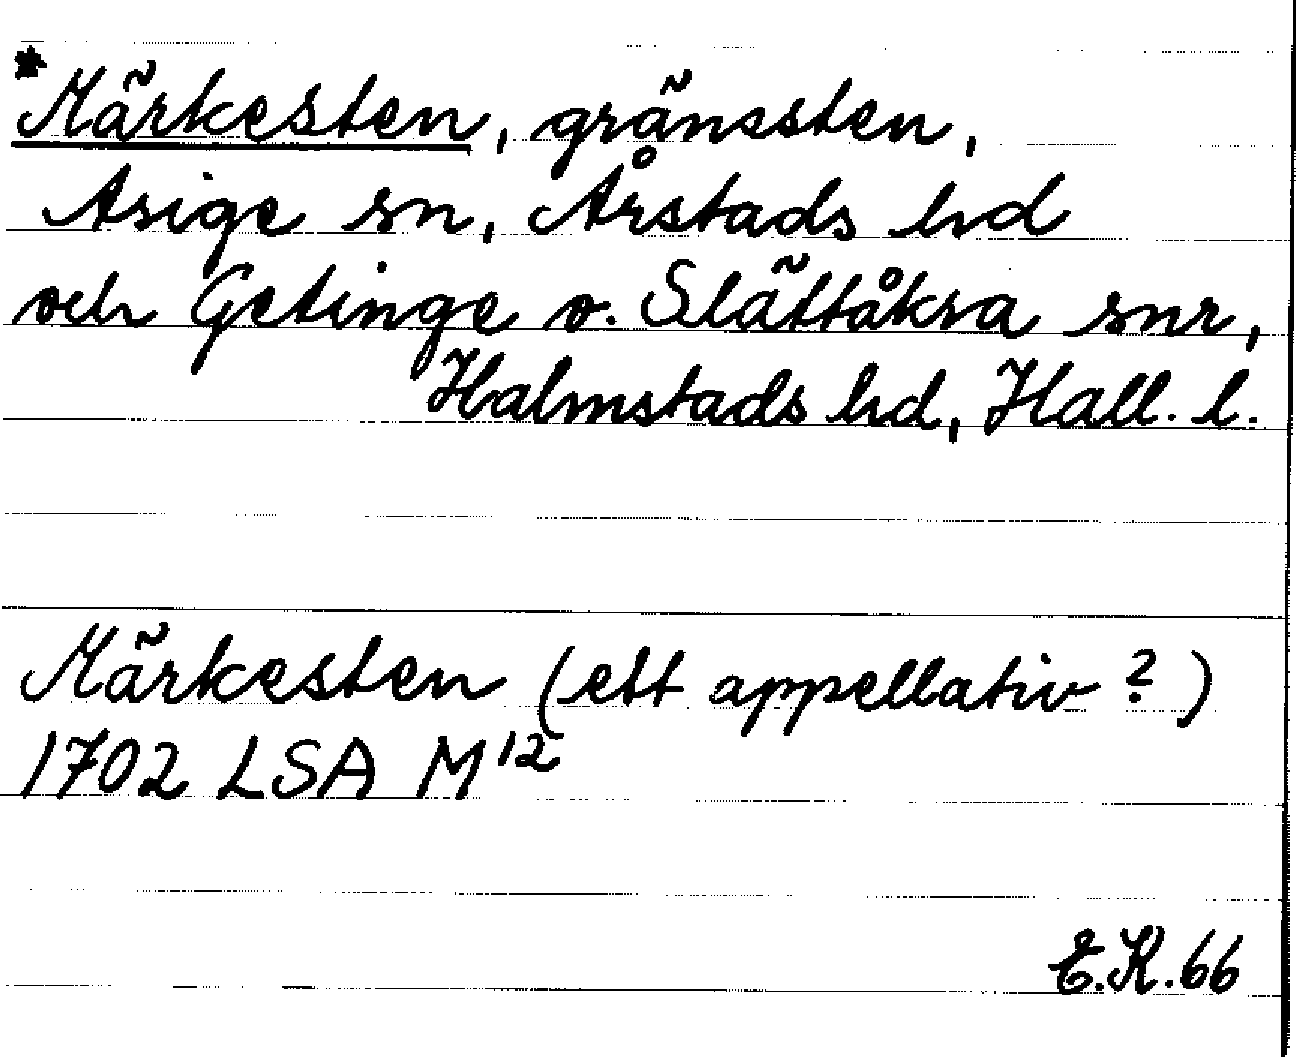 *Märkesten, gränssten,
Asige sn, Årstads hd
och Getinge o. Slättåkra snr,
Halmstads hd, Hall. l.
Märkesten (ett appellativ?)
1702 LSA M¹²
E.K.66